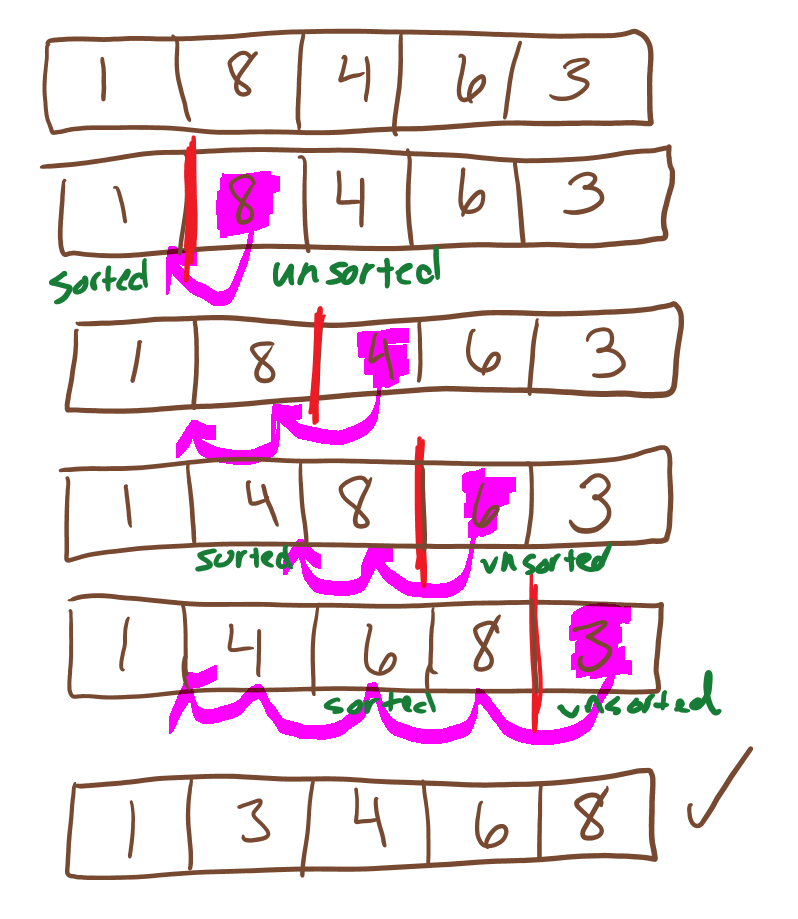 1 8 4 6 3
1 8 4 6 3
sorted unsorted
1 8 4 6 3
1 4 8 6 3
sorted unsorted
1 4 6 8 3
sorted unsorted
1 3 4 6 8